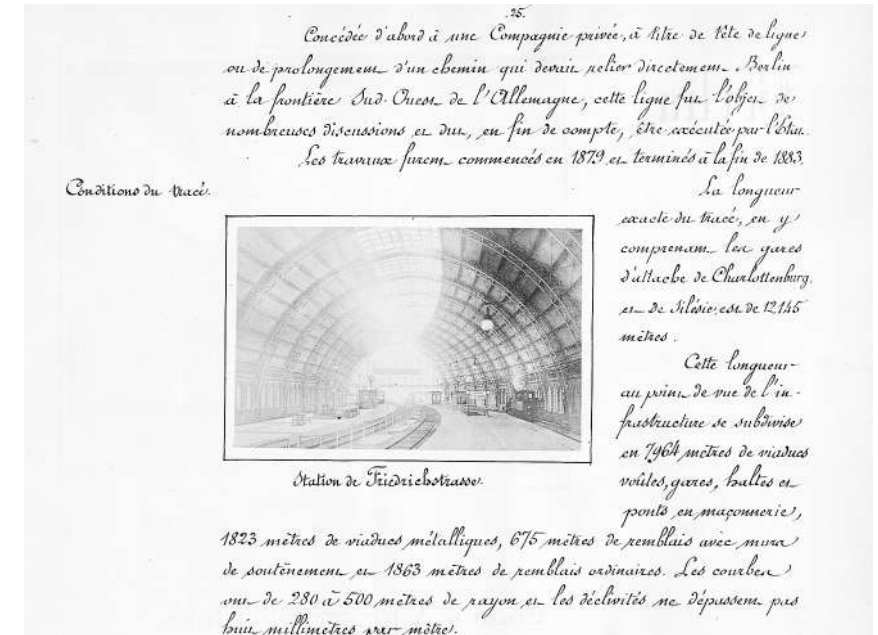 25.
Concédée d'abord à une Compagnie privée, à titre de tête de ligne
ou de prolongement d'un chemin qui devait relier directement Berlin
à la frontière Sud-Ouest de l'Allemagne, cette ligne fut l'objet de
nombreuses discussions et dut, en fin de compte, être exécutée par l'État.
Les travaux furent commencés en 1879 et terminés à la fin de 1883.
Conditions du tracé.
La longueur
exacte du tracé, en y
comprenant les gares
d'attache de Charlottenburg
et de Silésie, est de 12,145
mètres.
Cette longueur
au point de vue de l'in-
frastructure se subdivise
en 7964 mètres de viaducs
voûtés, gares, haltes et
ponts en maçonnerie,
Station de Friedrichstrasse.
1823 mètres de viaducs métalliques, 675 mètres de remblais avec murs
de soutènement et 1863 mètres de remblais ordinaires. Les courbes
ont de 280 à 500 mètres de rayon et les déclivités ne dépassent pas
huit millimètres par mètre.